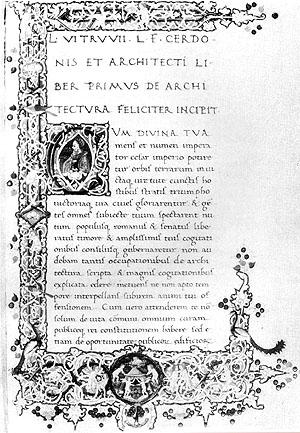 L. VITRVVII. L. F. CERDO
NIS ET ARCHITECTI LI
BER PRIMVS DE ARCHI
TECTVRA FELICITER INCIPIT.
QVM DIVINA TVA
mens et numen impera
tor cesar imperio potire
tur orbis terrarum in ui
ctaq; uirtute cunctis ho
stibus stratis triumpho
uictoriaq; tua ciues gloriarentur & ge
tes omnes subiecte tuum spectarent nu
tum populusq; romanus & senatus libe
ratus timore & amplissimis tuis cogitati
onibus consilijsq; gubernaretur non au
debam tantis occupationibus de archi
tectura scripta & magnis cogitationibus
explicata edere metuens ne non apto tem
pore interpellans subirem animi tui of
fensionem. Cum uero attenderem te no
solum de uita comuni omnium curam
publiceq; rei constitutionem habere sed e
tiam de oportunitate publicor edificior